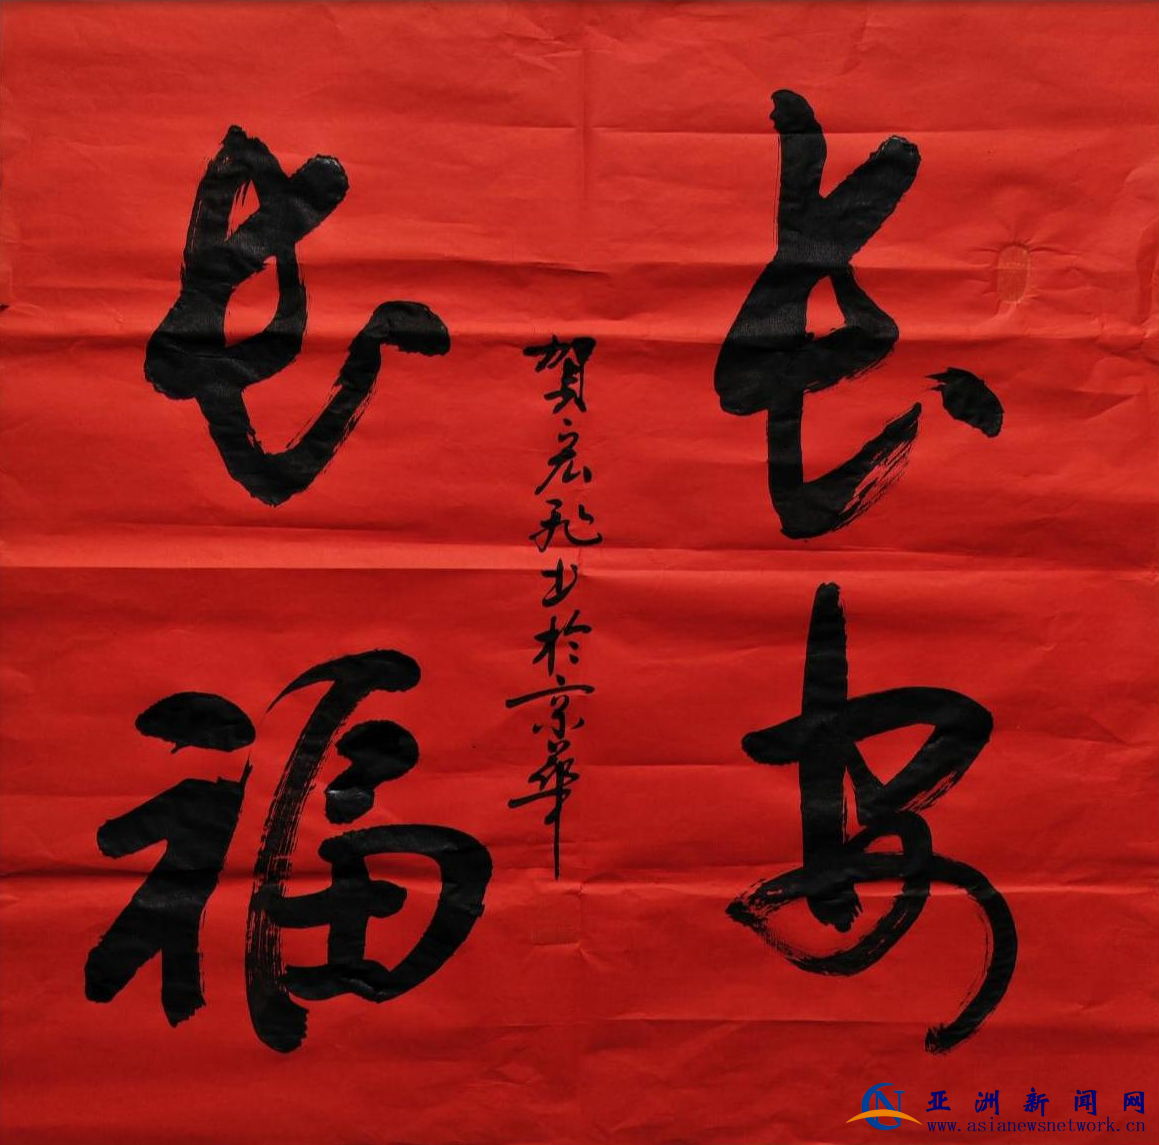 长安
长福
贺宏飞书于京华
亚洲新闻网
www.asianewsnetwork.cn